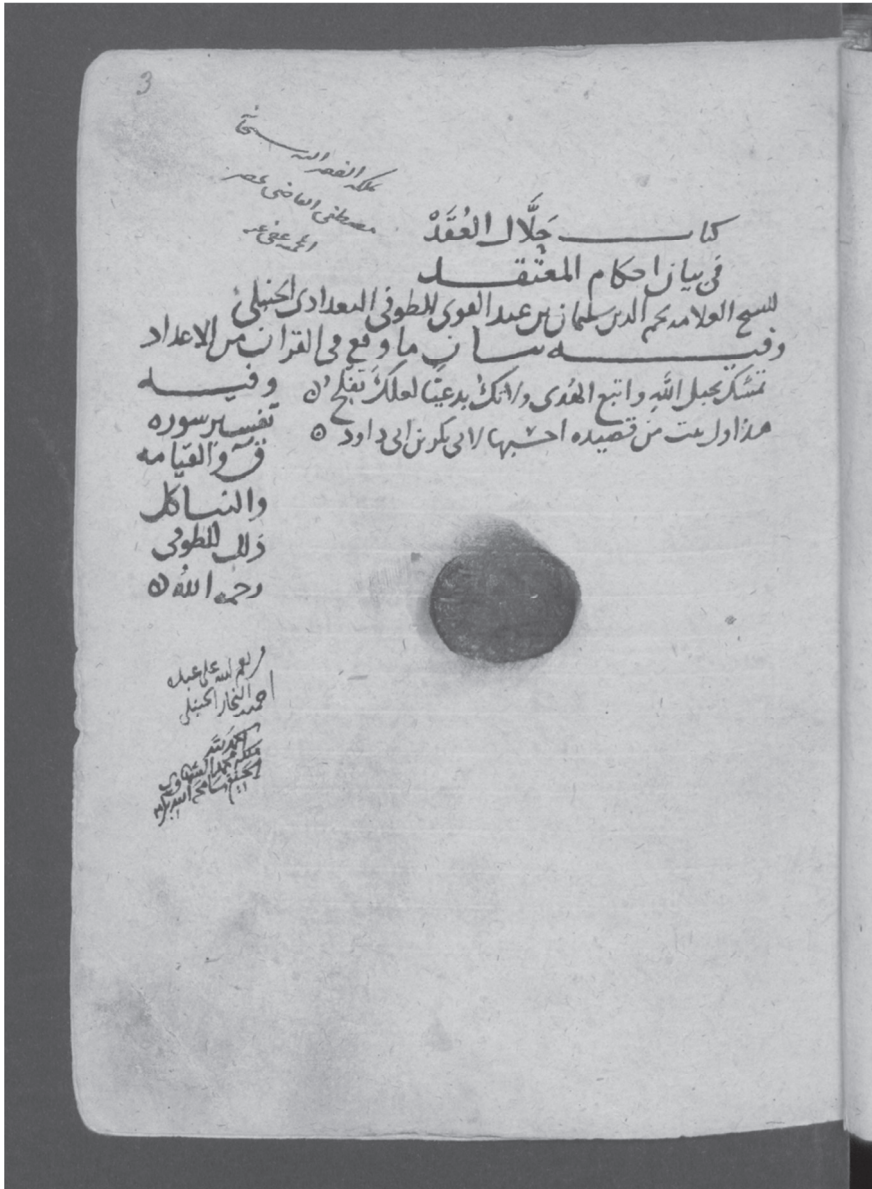 3
ملكه الفقير الله سبحانه
مصطفى القاضي بمصر
عفي عنه
كتاب حلال العُقَدْ
في بيان احكام المعتقد
للشيخ العلامه نجم الدين سليمان بن عبد القوي الطوفي البغدادي الحنبلي
وفيه بيان ما وقع في القران من الاعداد
تمسّك بحبل اللّٰه واتبع الهُدى ولا تكُ بدعيّا لعلك تفلحُ
هذا اول بيت من قصيده احسبها لابي بكر بن ابي داود
وفيه
تفسير سوره
قٓ والقيامه
والنبا كل
ذلك للطوفي
رحمه الله
من نعم الله على عبده
احمد النجار الحنبلي
الحمد لله
ملكه محمد
الحنفي